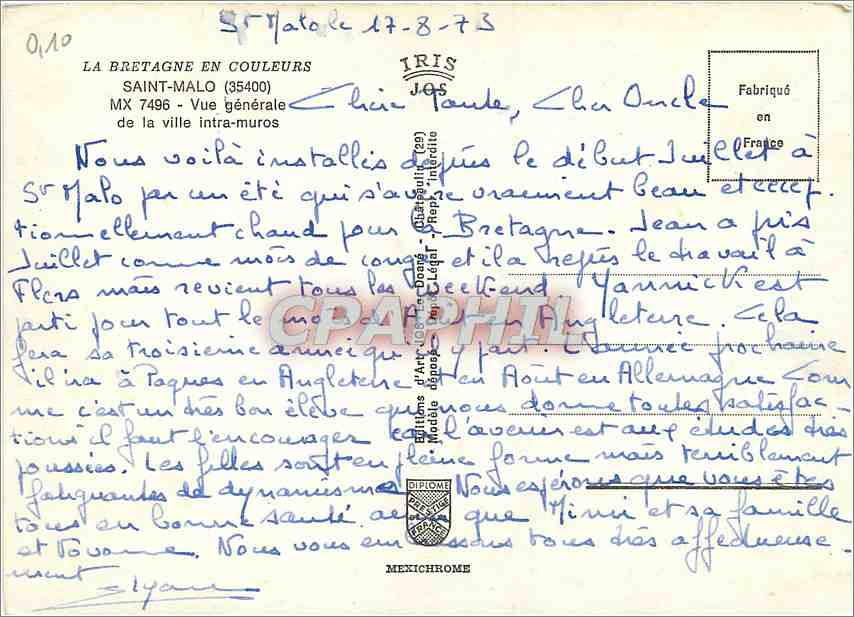 0,10
St Malo le 17-8-73
LA BRETAGNE EN COULEURS
SAINT-MALO (35400)
MX 7496 - Vue générale
de la ville intra-muros
IRIS
JOS
Fabriqué
en
France
Chère Tante, Cher Oncle
Nous voilà installés depuis le début Juillet à
St Malo par un été qui s'avère vraiment beau et excep-
tionnellement chaud pour la Bretagne. Jean a pris
Juillet comme mois de congé et il a repris le travail à
Flers mais revient tous les week-end Yannick est
parti pour tout le mois d'Août en Angleterre. Cela
fera sa troisième année qu'il y part. L'année prochaine
il ira à Paques en Angleterre et en Août en Allemagne Com
me c'est un très bon élève qui nous donne toutes satisfac-
tions il faut l'encourager car l'avenir est aux études très
poussées. Les filles sont en pleine forme mais terriblement
fatiguantes de dynamisme. Nous espérons que vous êtes
tous en bonne santé ainsi que Mimi et sa famille
et . Nous vous embrassons tous très affectueuse-
ment
Editions d'Art JOS Le Doaré - Châteaulin (29)
Modèle déposé - Dépôt Légal - Rep. interdite
CPAPHIL
DIPLOME
PRESTIGE
DE LA
FRANCE
MEXICHROME